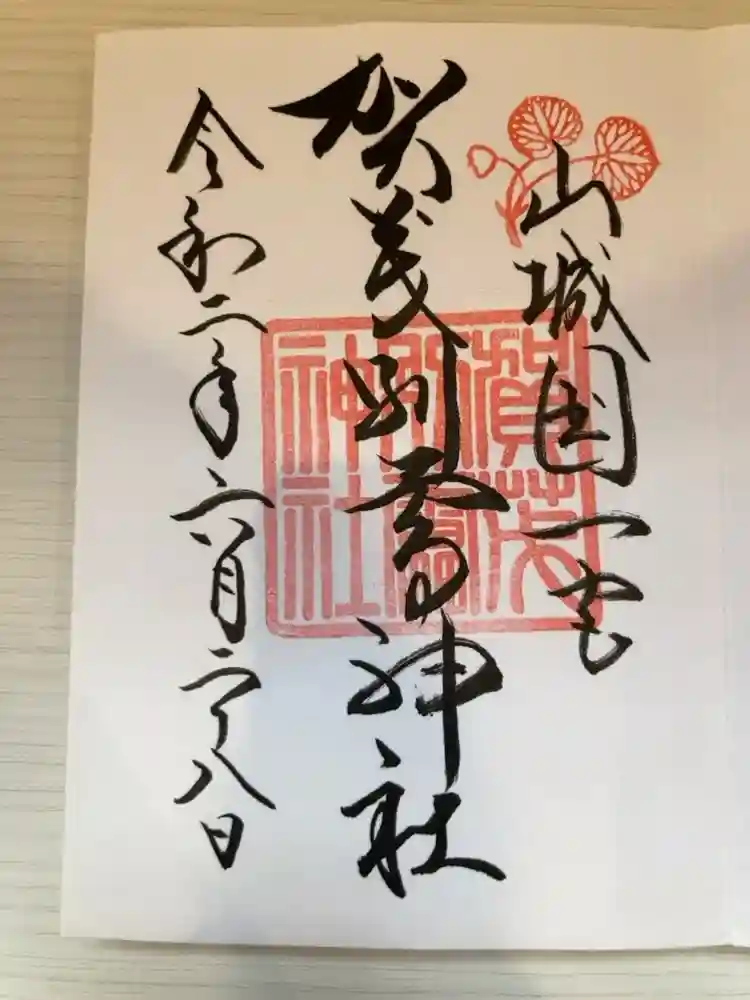 山城国一宮
賀茂別雷神社
令和二年六月二十八日
賀茂
別雷
神社